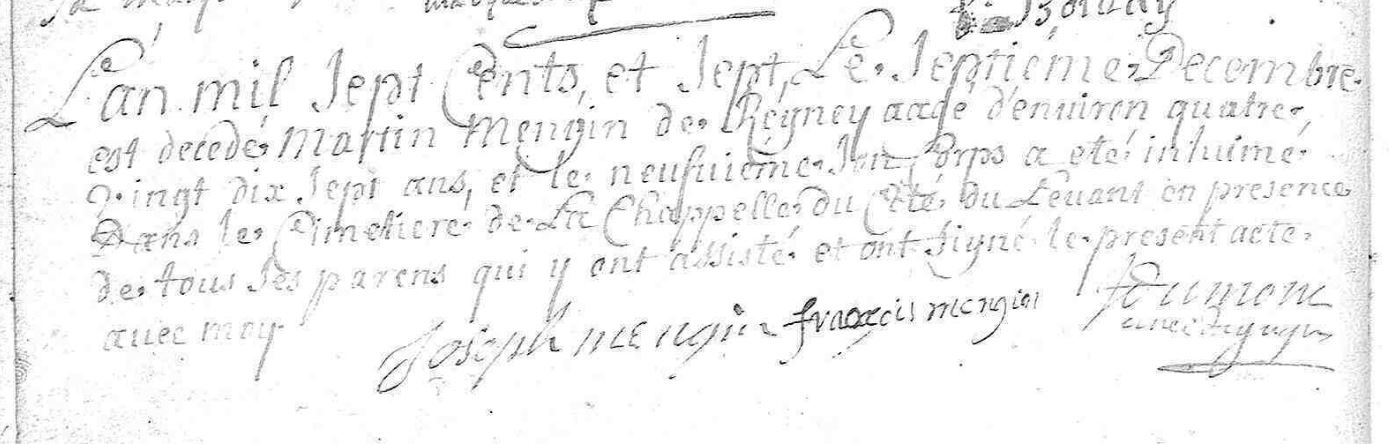 L'an mil sept Cents, et sept, Le septiéme Decembre
est decedé Martin Mengin de Reyney aagé d'enuiron quatre
vingt dix sept ans, et le neufuiéme son Corps a eté inhumé
Dans le Cimetiere de La Chappelle du Coté du Leuant en presence
de tous ses parens qui y ont assisté et ont signé le present acte
auec moy
Joseph mengin françois mengin